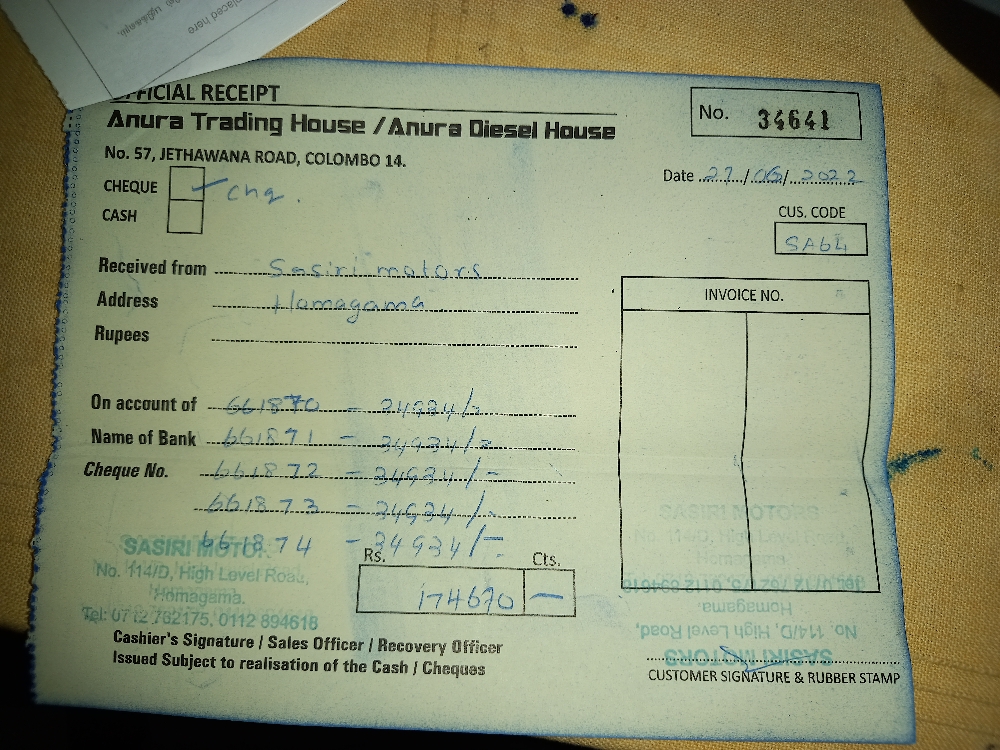 placed here
OFFICIAL RECEIPT
Anura Trading House / Anura Diesel House
No. 57, JETHAWANA ROAD, COLOMBO 14.
No. 34641
Date 27/05/2022
CHEQUE chq.
CASH
CUS. CODE
SA64
Received from Sasiri motors
Address Homagama
Rupees
INVOICE NO.
On account of 661870 - 34934/-
Name of Bank 661871 - 34934/-
Cheque No. 661872 - 34934/-
661873 - 34934/-
661874 - 34934/-
Rs. Cts.
174670 —
SASIRI MOTORS
No. 114/D, High Level Road,
Homagama.
Tel: 0712 762175, 0112 894618
Cashier's Signature / Sales Officer / Recovery Officer
Issued Subject to realisation of the Cash / Cheques
SASIRI MOTORS
No. 114/D, High Level Road,
Homagama
SASIRI MOTORS
No. 114/D, High Level Road,
Homagama.
Tel: 0712 762175, 0112 894618
CUSTOMER SIGNATURE & RUBBER STAMP